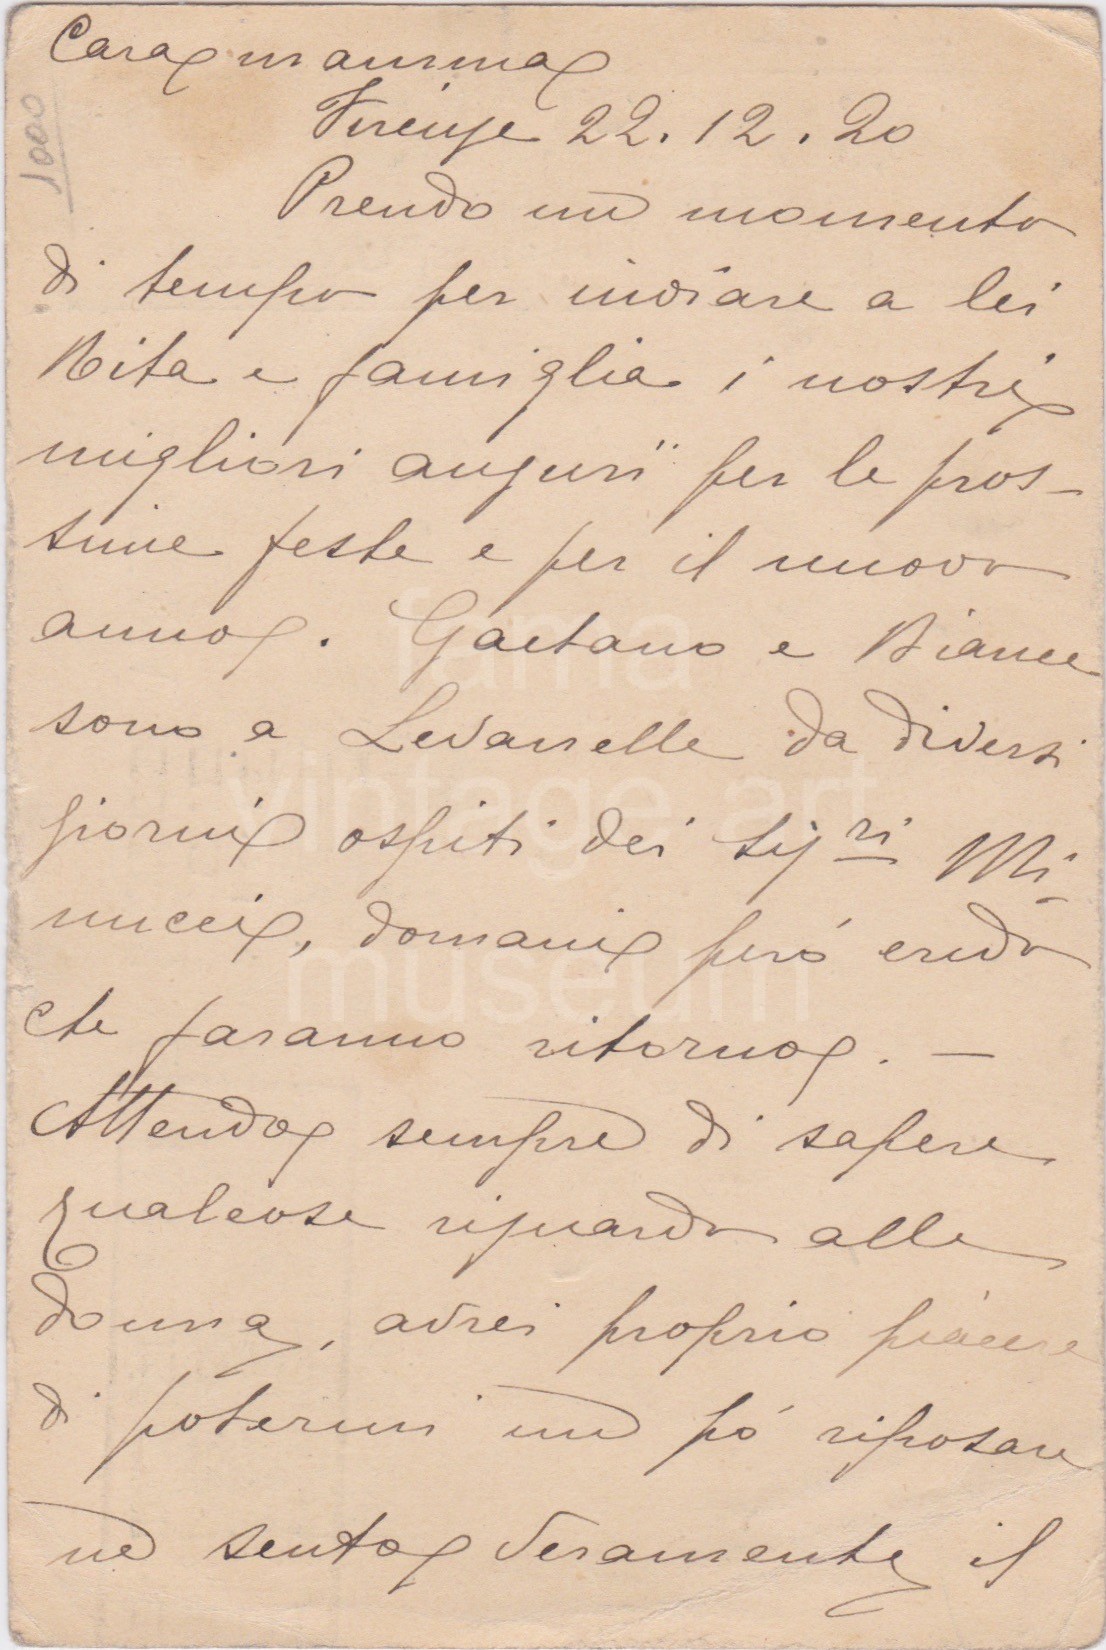 Cara mamma
1000
Firenze 22.12.20
Prendo un momento
di tempo per inviare a lei
Rita e famiglia i nostri
migliori augurii per le pros-
sime feste e per il nuovo
anno. Gaetano e Bianca
sono a Levanelle da diversi
giorni ospiti dei Sigri Mi-
nucci, domani però credo
che faranno ritorno. —
Attendo sempre di sapere
qualcosa riguardo alla
donna, avrei proprio piacere
di potermi un pó riposare
ne sento veramente il
fama
vintage art
museum